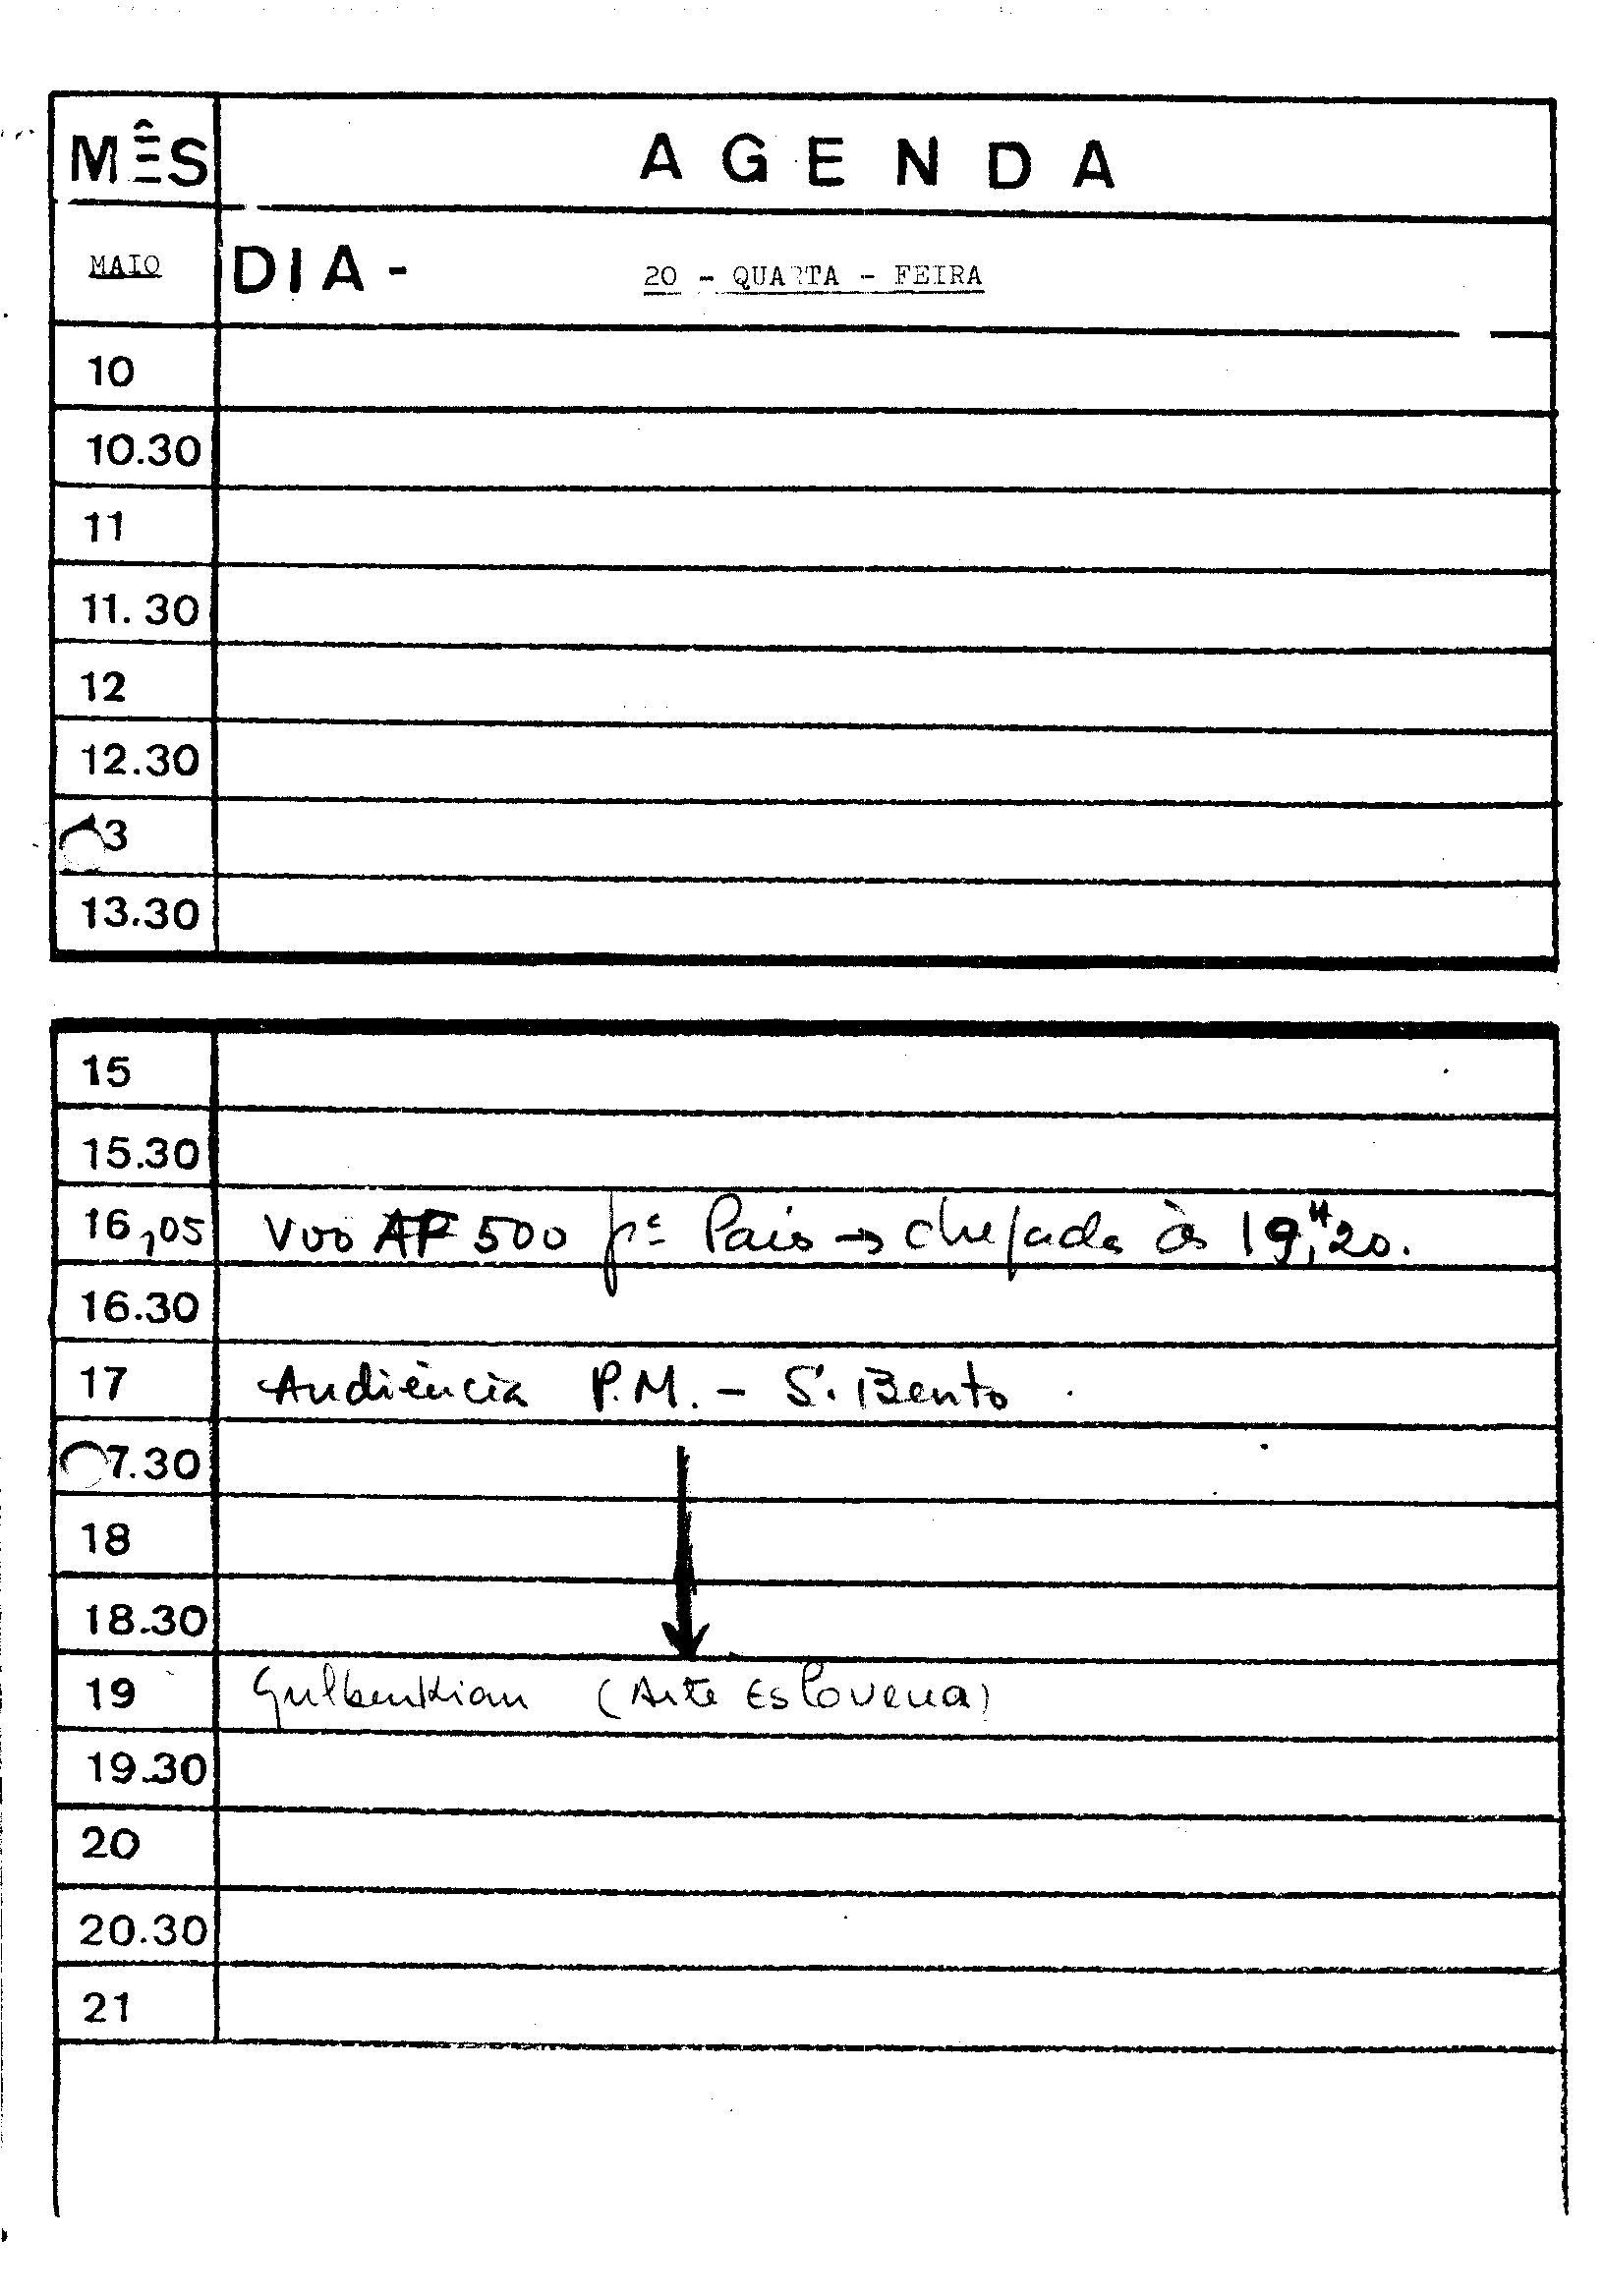 MÊS AGENDA
MAIO DIA - 20 - QUARTA - FEIRA
10
10.30
11
11.30
12
12.30
3
13.30
15
15.30
16,05 Voo AF 500 pª Paris → chegada às 19,H20.
16.30
17 Audiência P.M. - S. Bento
7.30
18
18.30
19 Gulbenkian (Arte Eslovena)
19.30
20
20.30
21